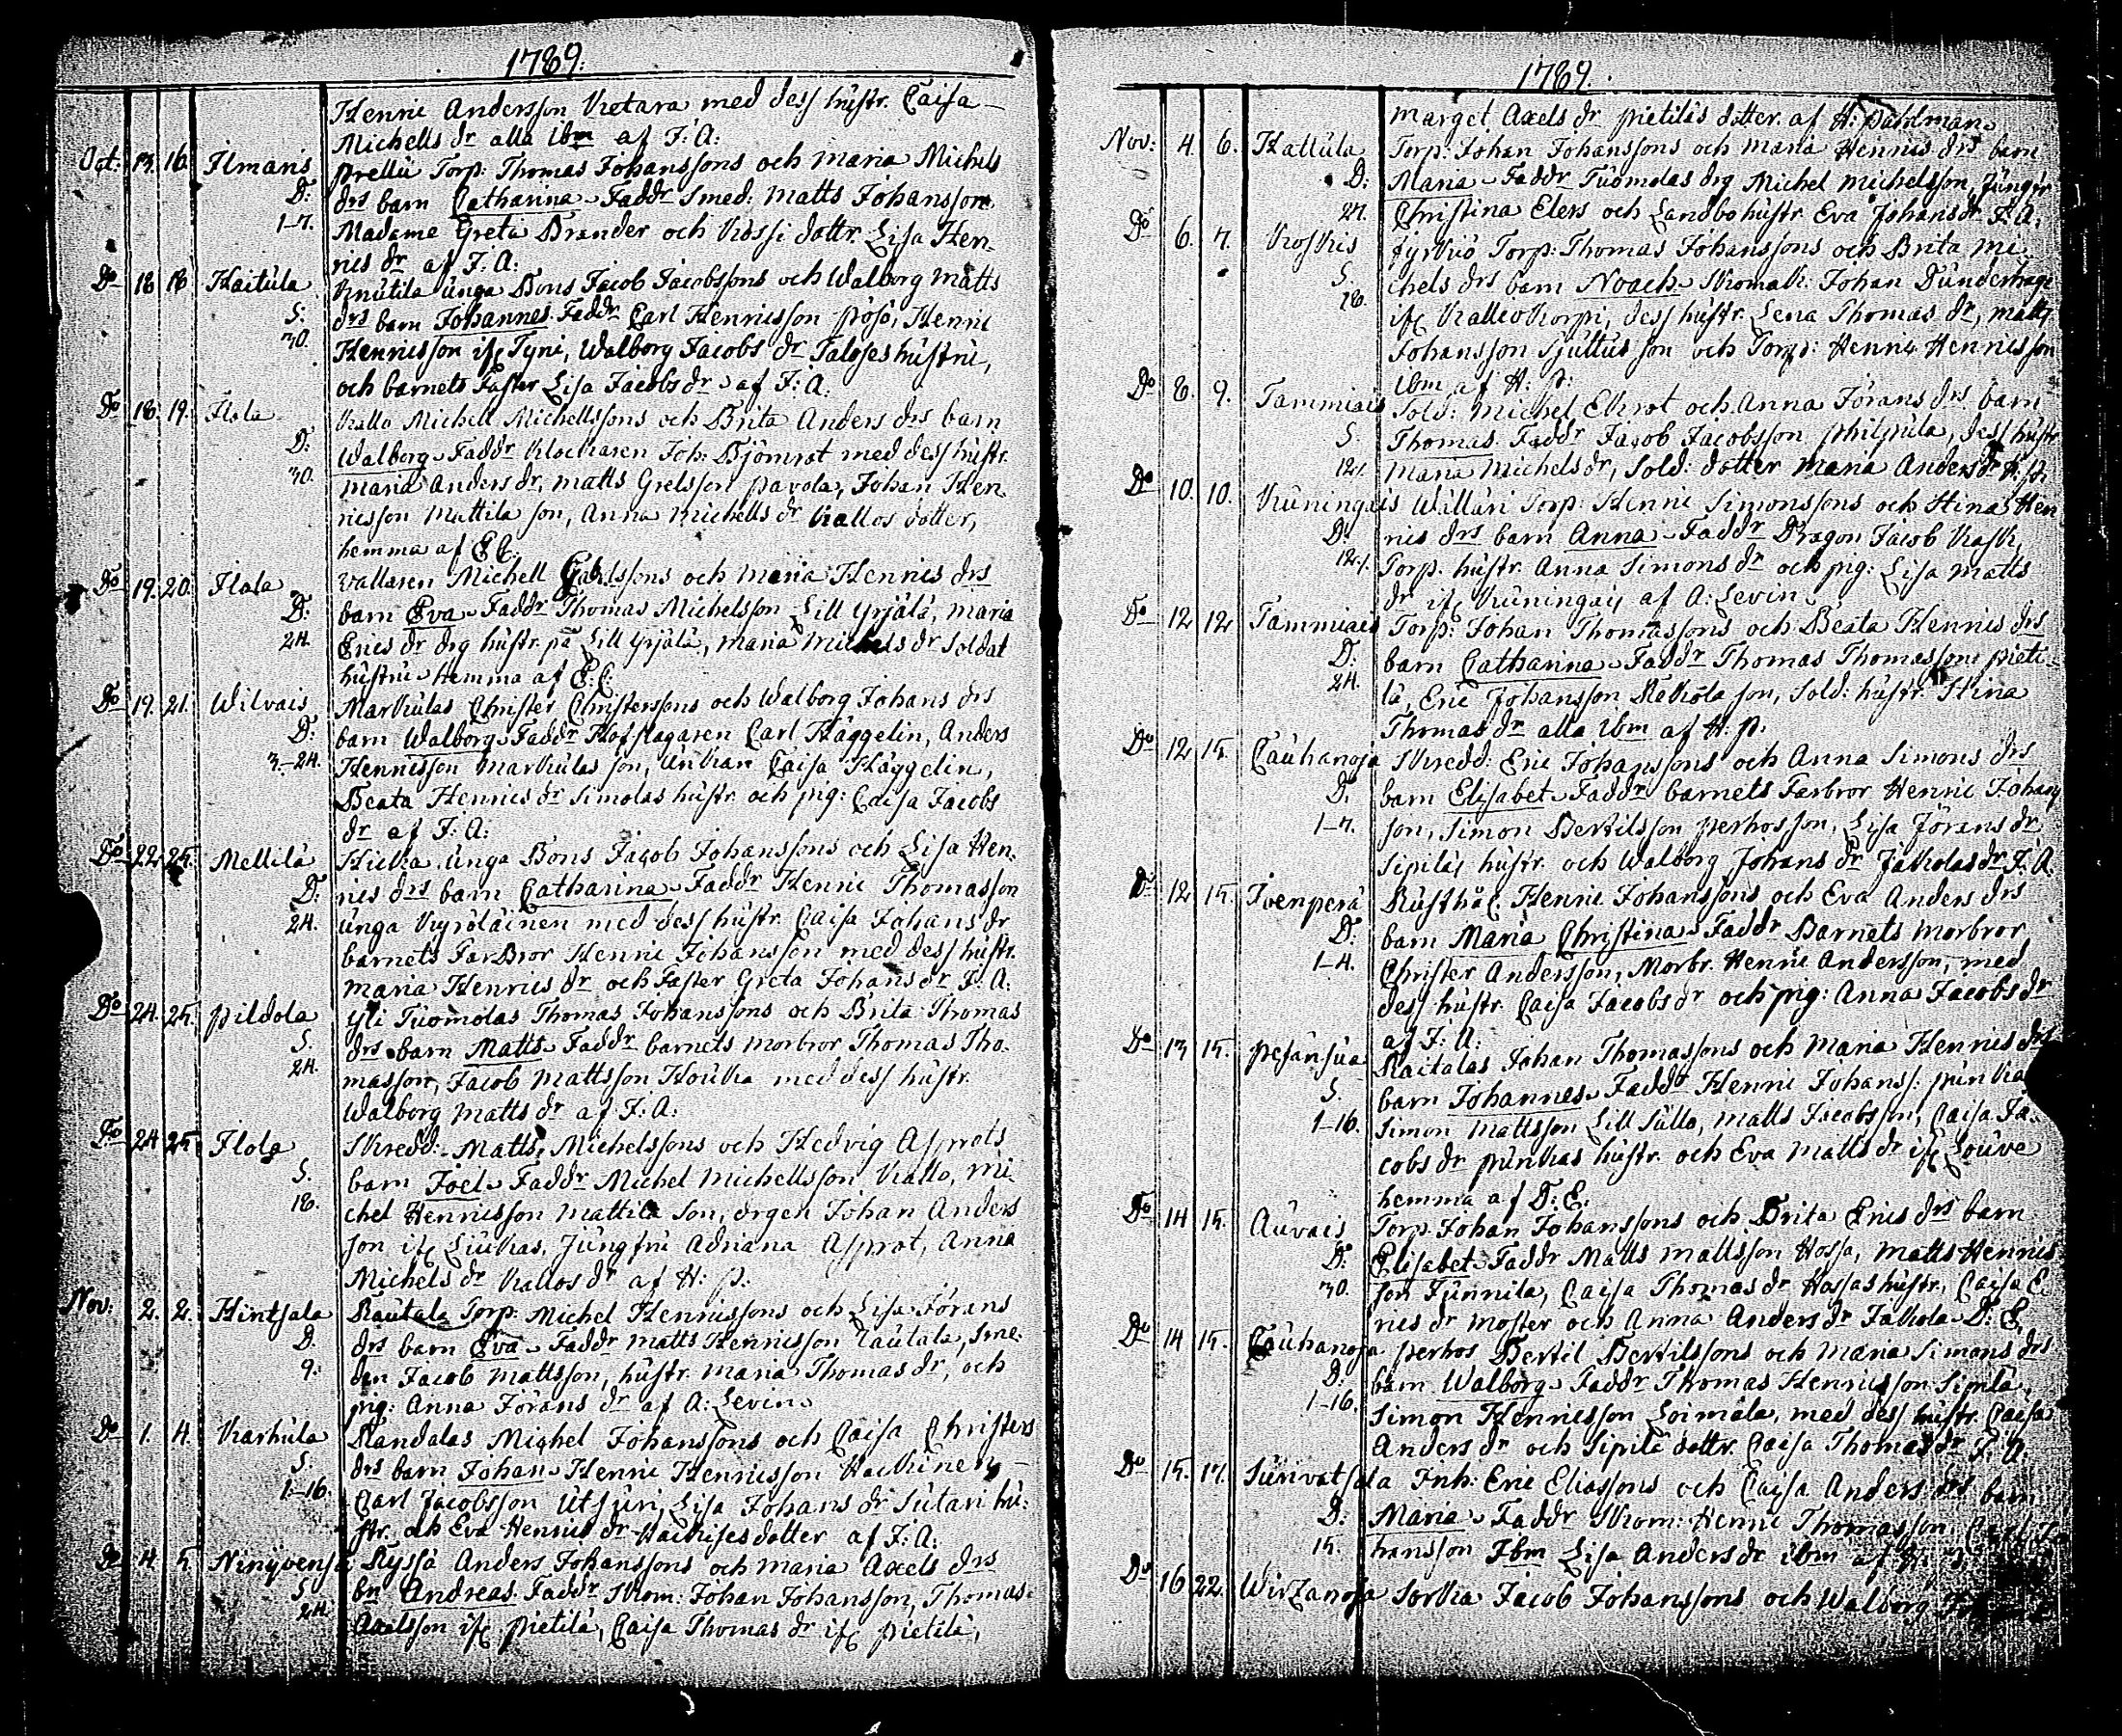 1789.
Henric Andersson Ketara med dess hustr. Caisa
Michells dr alla ibm af J: A:
Oct: 13. 16. Ilmaris Prellu Torp: Thomas Johanssons och Maria Michels
D: drs barn Catharina Faddr Smed: Matts Johansson
1-7. Madame Greta Brander och Kossi dottr. Lisa Hen-
rics dr af J: A:
Do 18 18 Haitula Knutila unga Bons Jacob Jacobssons och Walborg Matts
S: drs barn Johannes Faddr Carl Henricsson Pöso, Henric
30. Henricsson ifr Tyni, Walborg Jacobs dr Taloses hustru,
och barnets Faster Lisa Jacobs dr af J: A:
Do 18. 19. Ilola Kallo Michell Michellssons och Brita Anders drs barn
D: Walborg Faddr Klockaren Joh: Björnrot med dess hustr.
30. Maria Anders dr, Matts Grelsson Pavola, Johan Hen-
ricsson Mattila son, Anna Michells dr Kallos dotter,
hemma af E C.
Do 19. 20. Ilola Vallaren Michell sons och Maria Henrics drs
D: barn Eva Faddr Thomas Michelsson Lill Yrjälä, Maria
24. Erics dr drg hustr. på Lill Yrjälä, Maria Michels dr Soldat
hustru hemma af E: C:
Do 19. 21. Wilvais Markulas Christer Christerssons och Walborg Johans drs
D: barn Walborg Faddr Hofslagaren Carl Häggelin, Anders
3.-24. Henricsson Markulas son, Enkan Caisa Häggelin,
Beata Henrics dr Simolas hustr. och pig: Caisa Jacobs
dr af J: A:
Do 22. 25. Mellilä Hiucka unga Bons Jacob Johanssons och Lisa Hen-
D: rics drs barn Catharina Faddr Henric Thomasson
24. unga Kyröläinen med dess hustr. Caisa Johans dr
barnets FarBror Henric Johansson med dess hustr.
Maria Henrics dr och Faster Greta Johans dr J: A:
Do 24. 25. Pildola Yli Tuomolas Thomas Johanssons och Brita Thomas
S. drs barn Matts Faddr barnets morbror Thomas Tho-
24. masson, Jacob Mattsson Houka med dess hustr.
Walborg Matts dr af J: A:
Do 24 25 Ilola Skredd: Matts Michelssons och Hedvig Asprots
S. barn Joel Faddr Michel Michellsson Kallo, Mi-
18. chel Henricsson Mattila son, drgen Johan Anders
son ifr Liukas, Jungfru Adriana Asprot, Anna
Michels dr Kallos dr af H: P:
Nov: 2. 2. Hintsala Rautala Torp: Michel Henricssons och Lisa Jörans
D. drs barn Eva Faddr Matts Henricsson Rautala, Sme-
9: den Jacob Mattsson, hustr. Maria Thomas dr, och
pig: Anna Jörans dr af A: Levin
Do 1. 4. Karhula Randalas Michel Johanssons och Caisa Christers
S: drs barn Johan Henric Henricsson Hackinen,
1-16. Carl Jacobsson Utsuri, Lisa Johans dr Sutari hu-
str. och Eva Henrics dr dotter af J: A:
Do 4. 5. Ninijoensu Ryssä Anders Johanssons och Maria Axels drs
S. bn Andreas Faddr Skom: Johan Johansson, Thomas
24. Axelsson ifr Pietilä, Caisa Thomas dr ifr Pietilä,
1789.
Marget Axels dr Pietiläs dotter af H: Pahlman
Nov: 4. 6. Kallula Torp: Johan Johanssons och Maria Henrics drs barn
D: Maria Faddr Tuomolas drg Michel Michelsson, Jungfr
27. Christina Elers och Landbohustr. Eva Johans dr J: A:
Do 6. 7. Koskis Jyrkiö Torp: Thomas Johanssons och Brita Mi-
S. chels drs barn Noach Skomak: Johan Dunderhage
18. ifr Kalleokorpi, dess hustr. Lena Thomas dr, Matts
Johansson Sjuttus son och Torp: Henric Henricsson
ibm af H: P:
Do 8. 9. Tammiais Sold: Michel Ekrot och Anna Jörans drs barn
S. Thomas Faddr Jacob Jacobsson Philpula, dess hustr
Maria Michels dr, Sold: dotter Maria Anders dr H. P.
Do 10. 10. Kuningais Wälläri Torp: Henric Simonssons och Stina Hen
D. rics drs barn Anna Faddr Dragon Jacob Kask,
Torp. hustr. Anna Simons dr och pig: Lisa Matts
dr ifr Kuningais af A: Levin
Do 12 12 Tammiais Torp: Johan Thomassons och Beata Henrics drs
D: barn Catharina Faddr Thomas Thomasson Pieti-
24. lä, Eric Johansson Rekola son, Sold: hustr. Stina
Thomas dr alla ibm af H. P.
Do 12 15. Cauhanoja Skredd: Eric Johanssons och Anna Simons drs
D. barn Elisabet Faddr barnets Farbror Henric Johans
1-7. son, Simon Bertilsson Perhos son, Lisa Jörans dr
Sipiläs hustr. och Walborg Johans dr Jakolas dr J: A.
Do 12 15. Ivenperä Rusthål. Henric Johanssons och Eva Anders drs
D: barn Maria Christina Faddr Barnets Morbror
1-4. Christer Andersson, Morbr. Henric Andersson, med
dess hustr. Caisa Jacobs dr och pig: Anna Jacobs dr
af J: A:
Do 13 15. Pesänsua Raitalas Johan Thomassons och Maria Henrics drs
S. barn Johannes Faddr Henric Johanss: Punka
1-16. Simon Mattsson Lill Sullo, Matts Jacobsson, Caisa Ja-
cobs dr Punkas hustr. och Eva Matts dr ifr Louve
hemma af D: E.
Do 14 15. Auvais Torp: Johan Johanssons och Brita Erics drs barn
D: Elisabet Faddr Matts Mattsson Hossa, Matts Henrics
30. son Junnila, Caisa Thomas dr Hossas hustr., Caisa E-
rics dr moster och Anna Anders dr Jakola D: E.
Do 14 15. Cauhanoja Perhos Bertil Bertilssons och Maria Simons drs
D: barn Walborg Faddr Thomas Henricsson Sipilä,
1-16. Simon Henricsson Loimala, med dess hustr. Caisa
Anders dr och Sipilä dottr. Caisa Thomas dr J: A.
Do 15. 17. Sunvatsala Inh: Eric Eliassons och Caisa Anders drs barn
D: Maria Faddr Skom: Henric Thomasson,
15. hansson Ibm Lisa Anders dr ibm af H:
Do 16 22. Wirzanoja Sorkka Jacob Johanssons och Walborg